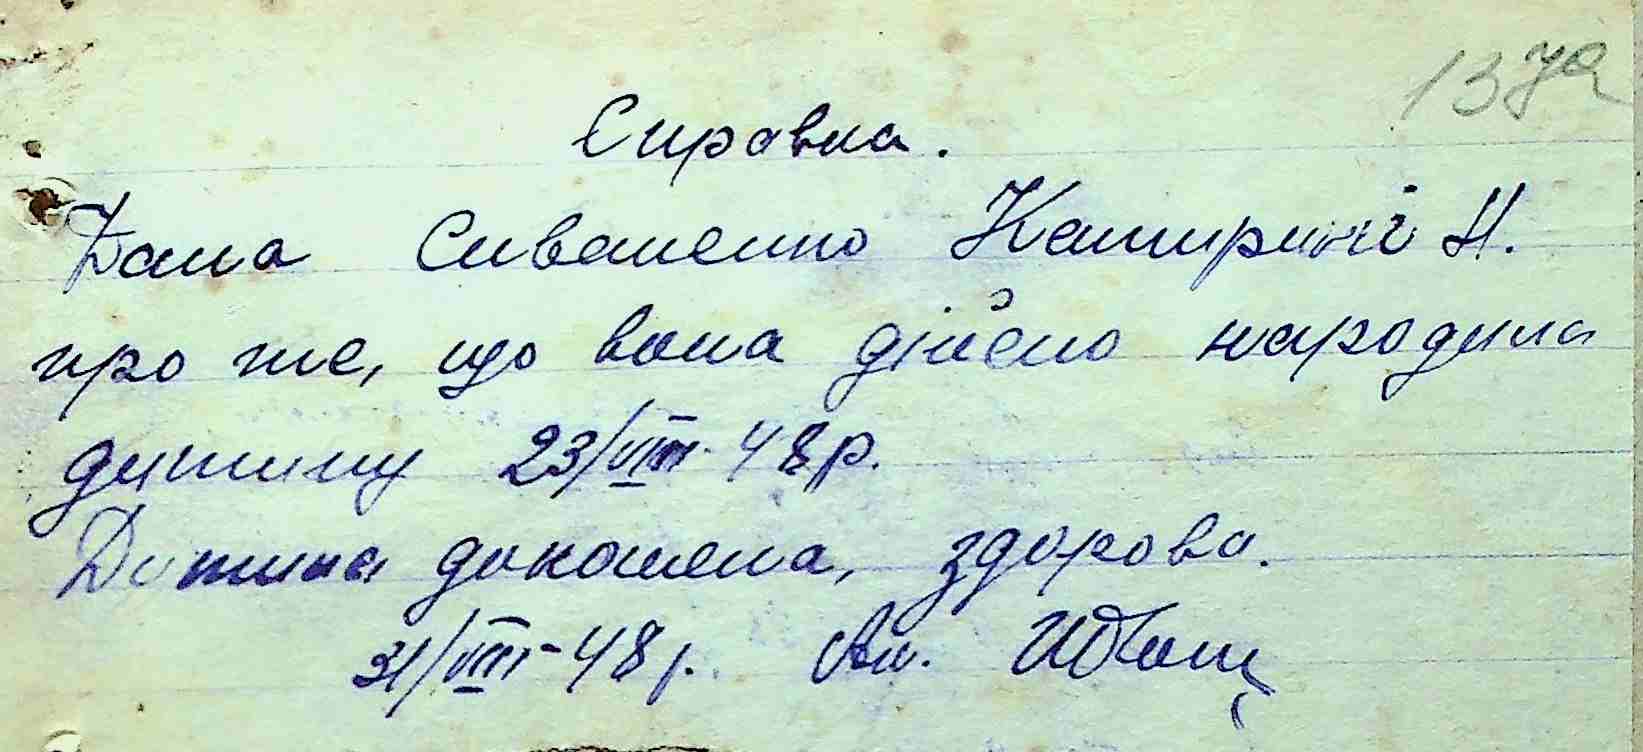 137а
Справка.
Дана Сиваненко Катирині Н.
про те, що вона дійсно народила
дитину 23/VIII-48р.
Дитина доношена, здорова.
31/VIII-48р. Ак.